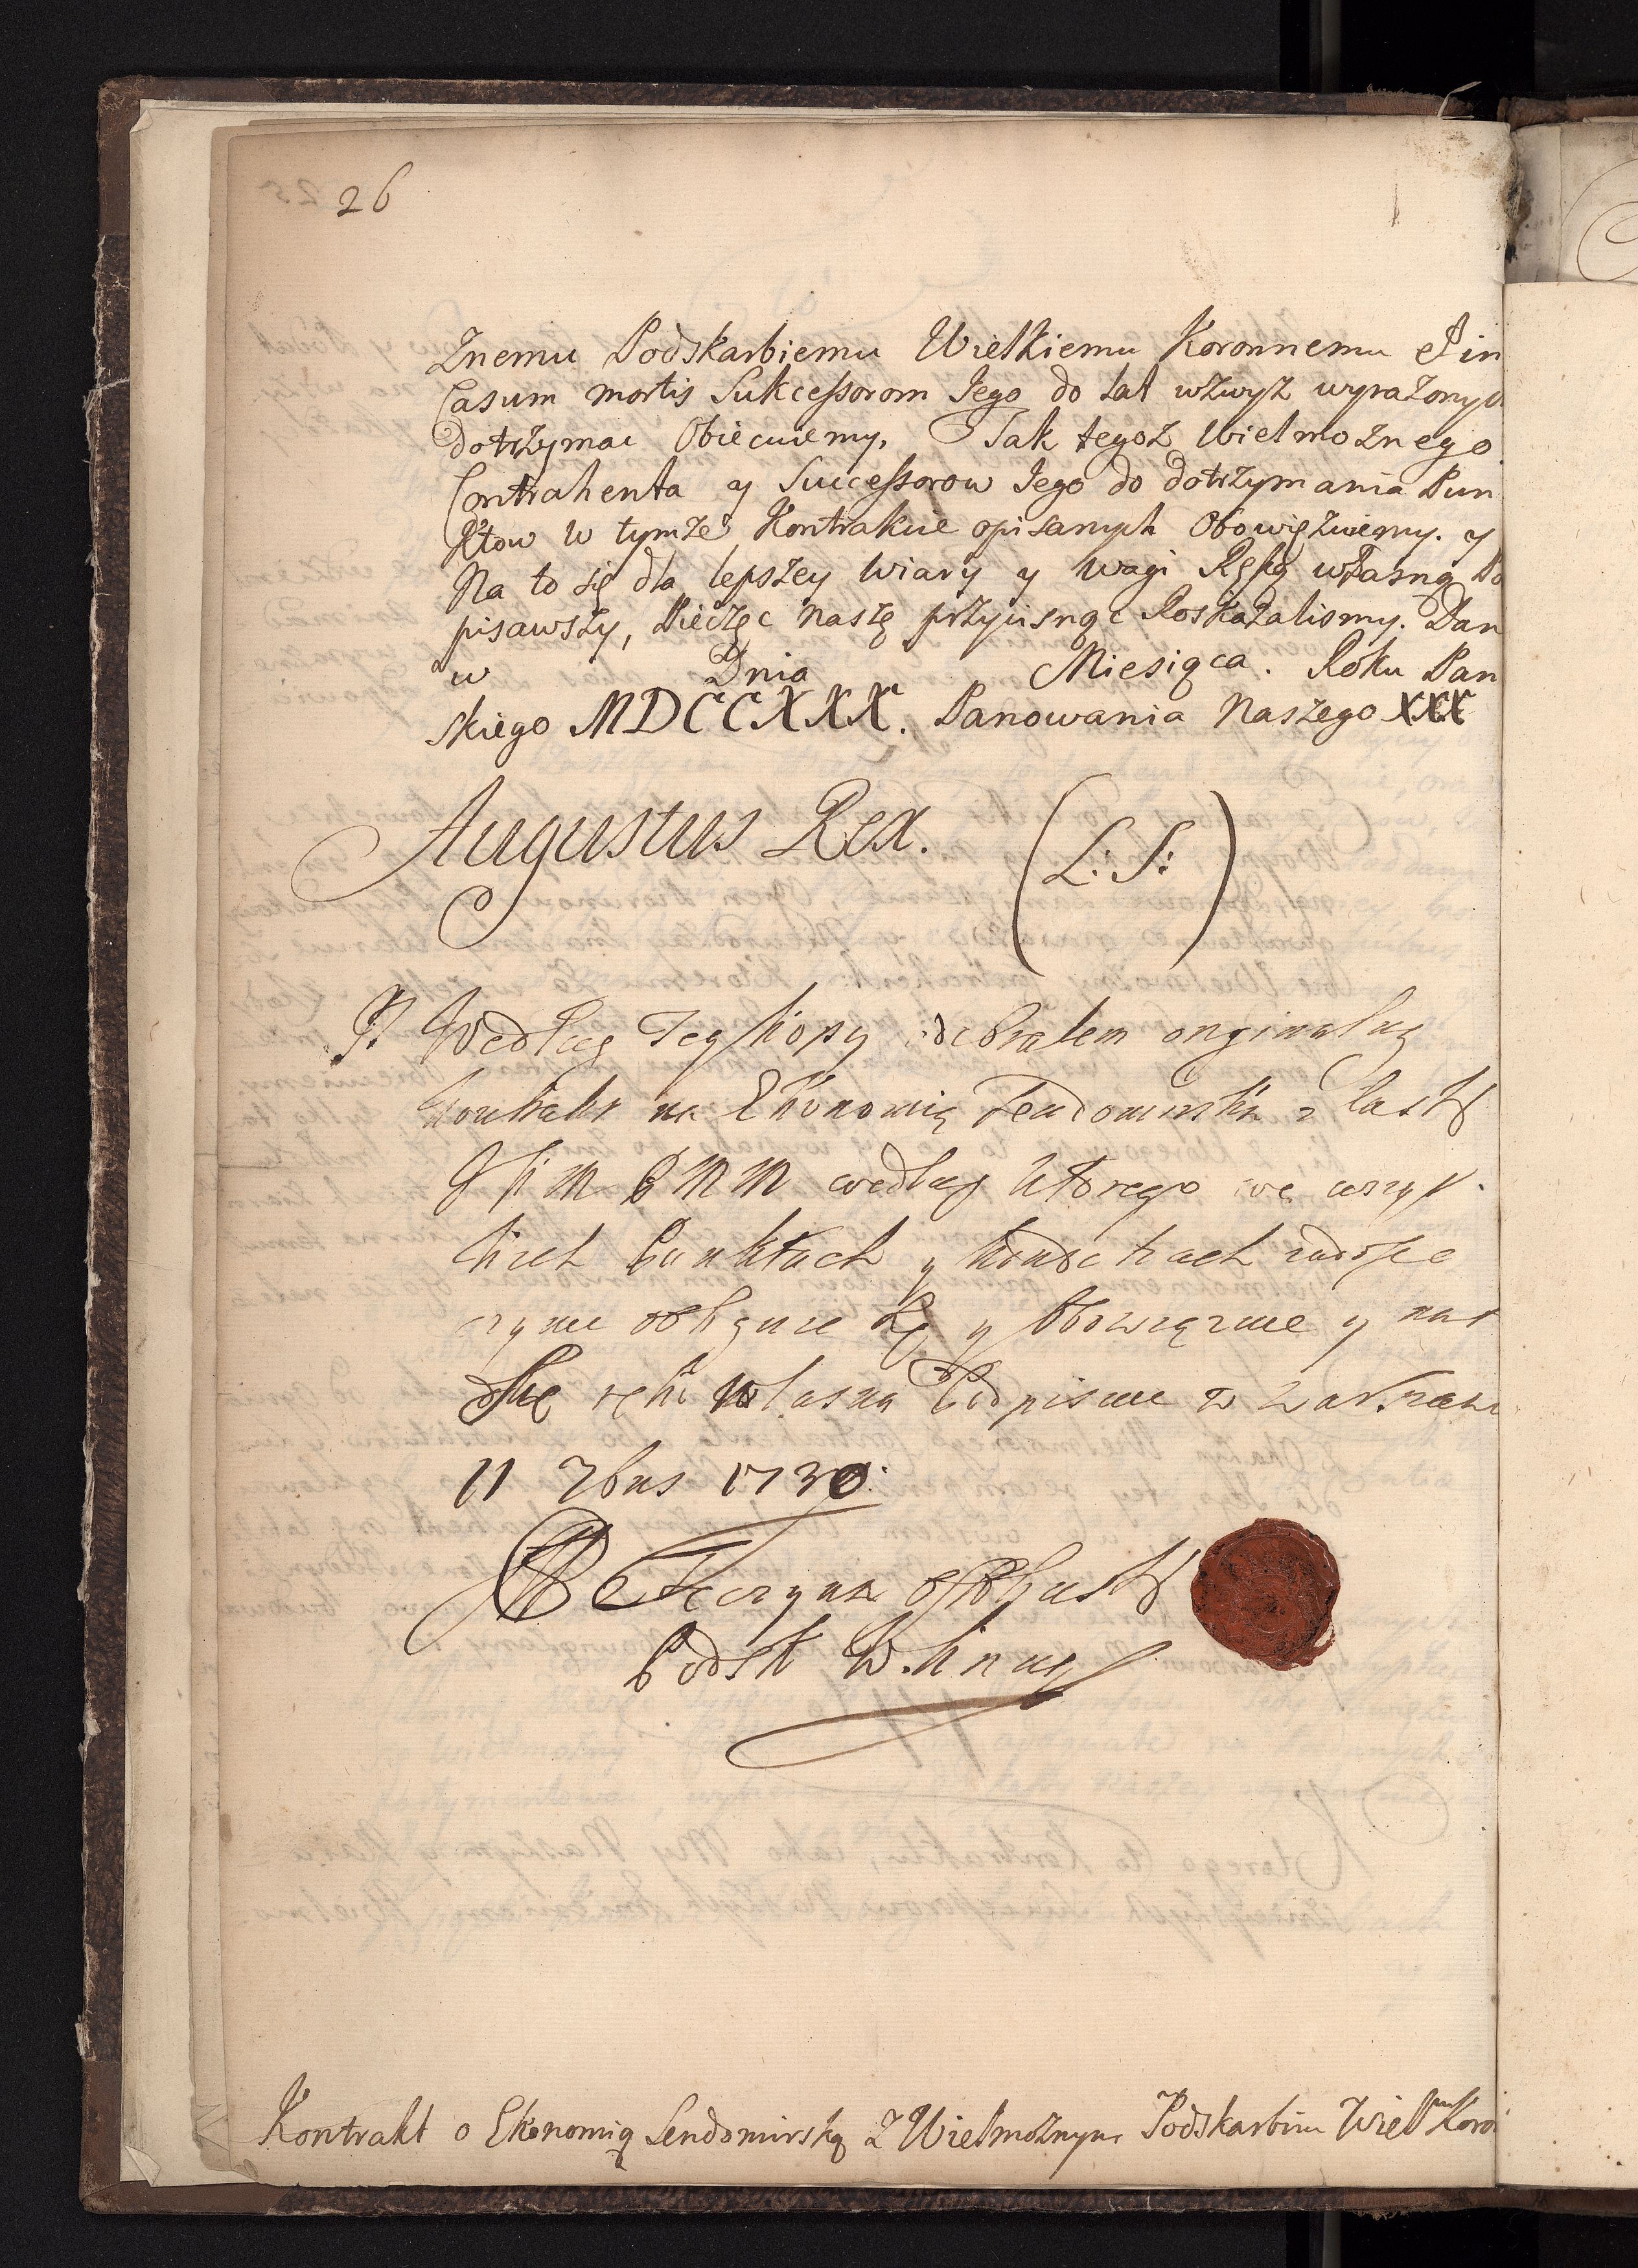 26
Znemu Podskarbiemu Wielkiemu Koronnemu Et in
Casum mortis Sukcessorom Iego do Lat wzwyż wyrażonych
dotrzymac Obiecuiemy, Tak tegoż Wielmożnego
Contrahenta y Successorow Iego do dotrzymania Pun
Ktow w tymże Kontrakcie opisanych Obowięzuiemy. y
Na to się dla lepszey Wiary y wagi Ręką własną Po
pisawszy, Pieczęc naszę przycisnąc Roskazalismy. Dan
w Dnia Miesiąca. Roku Pan
skiego MDCCXXX. Panowania Naszego XXX
Augustus Rex. (L: S:)
Według Tey Kopy odebralem orginalny
Kontrakt na Ekonomię Sendomirską z łaski
według ktorego we wszyt
kich Punktach y kondictiach
czynic obliguie się y Obowięzuie y na to
się ręką własną Podpisuie w Warszawie
11 7bris 1730.
Podsk W. Kor
Kontrakt o Ekonomią Sendomirską z Wielmożnym Podskarbim Wielm Koro